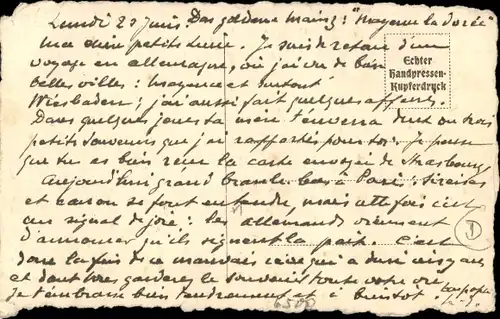 Lundi 23 Juin. Das goldene Mainz: "Mayence la dorée"
Ma chère petite Je suis de retour d'un
voyage en allemagne, où j'ai vu de bien
belles villes: Mayence et surtout
Wiesbaden; j'ai aussi fait quelques affaires.
Dans quelques jours ta t'enverra deux ou trois
petits souvenirs que j'ai rapportés pour toi. je pense
que tu as bien reçu la carte envoyée de Strasbourg
Aujourd'hui grand branle bas à Paris. Sirènes
et canon se font entendre, mais cette fois c'est
un signal de joie: les allemands viennent
d'annoncer qu'ils signent la paix. C'est
donc la fin de ce mauvais rêve qui a duré cinq ans
et dont vous garderez le souvenir toute votre vie
Je t'embrasse bien tendrement et à bientôt.
Echter
Handpressen-
Kupferdruck
6500